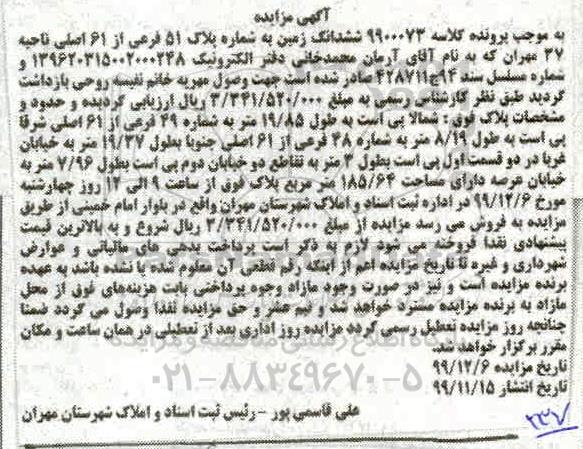 آگهی مزایده
به موجب پرونده کلاسه ۹۹۰۰۰۷۳ ششدانگ زمین به شماره پلاک ۵۱ فرعی از ۶۱ اصلی ناحیه
۲۷ مهران که به نام آقای آرمان محمدخانی دفتر الکترونیک ۱۳۹۶۲۰۳۱۵۰۰۲۰۰۰۲۴۸ و
شماره مسلسل سند ۹۴ج۴۲۸۷۱۱ صادر شده است جهت وصول مهریه خانم نفیسه روحی بازداشت
گردید طبق نظر کارشناس رسمی به مبلغ ۳/۳۴۱/۵۲۰/۰۰۰ ریال ارزیابی گردیده و حدود و
مشخصات پلاک فوق : شمالا پی است به طول ۱۹/۸۵ متر به شماره ۴۹ فرعی از ۶۱ اصلی شرقا
پی است به طول ۸/۱۹ متر به شماره ۴۸ فرعی از ۶۱ اصلی جنوبا بطول ۱۹/۳۷ متر به خیابان
غربا در دو قسمت اول پی است بطول ۳ متر به تقاطع دو خیابان دوم پی است بطول ۷/۹۶ متر به
خیابان عرصه دارای مساحت ۱۸۵/۶۴ متر مربع پلاک فوق از ساعت ۹ الی ۱۲ روز چهارشنبه
مورخ ۹۹/۱۲/۶ در اداره ثبت اسناد و املاک شهرستان مهران واقع در بلوار امام خمینی از طریق
مزایده به فروش می رسد مزایده از مبلغ ۳/۳۴۱/۵۲۰/۰۰۰ ریال شروع و به بالاترین قیمت
پیشنهادی نقدا فروخته می شود لازم به ذکر است پرداخت بدهی های مالیاتی و عوارض
شهرداری و غیره تا تاریخ مزایده اعم از اینکه رقم قطعی آن معلوم شده یا نشده باشد به عهده
برنده مزایده است و نیز در صورت وجود مازاد وجوه پرداختی بابت هزینه‌های فوق از محل
مازاد به برنده مزایده مسترد خواهد شد و نیم عشر و حق مزایده نقدا وصول می گردد ضمنا
چنانچه روز مزایده تعطیل رسمی گردد مزایده روز اداری بعد از تعطیلی در همان ساعت و مکان
مقرر برگزار خواهد شد.
تاریخ مزایده ۹۹/۱۲/۶
تاریخ انتشار ۹۹/۱۱/۱۵
۰۲۱-۸۸۳۴۹۶۷۰-۵
علی قاسمی پور - رئیس ثبت اسناد و املاک شهرستان مهران
۲۳۷